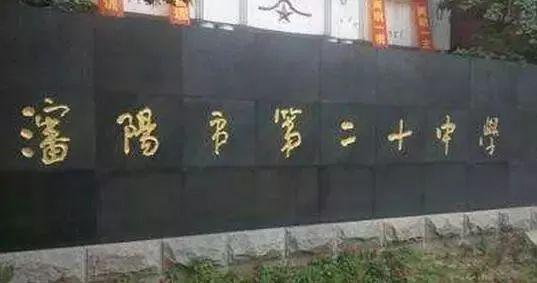 瀋陽市第二十中學